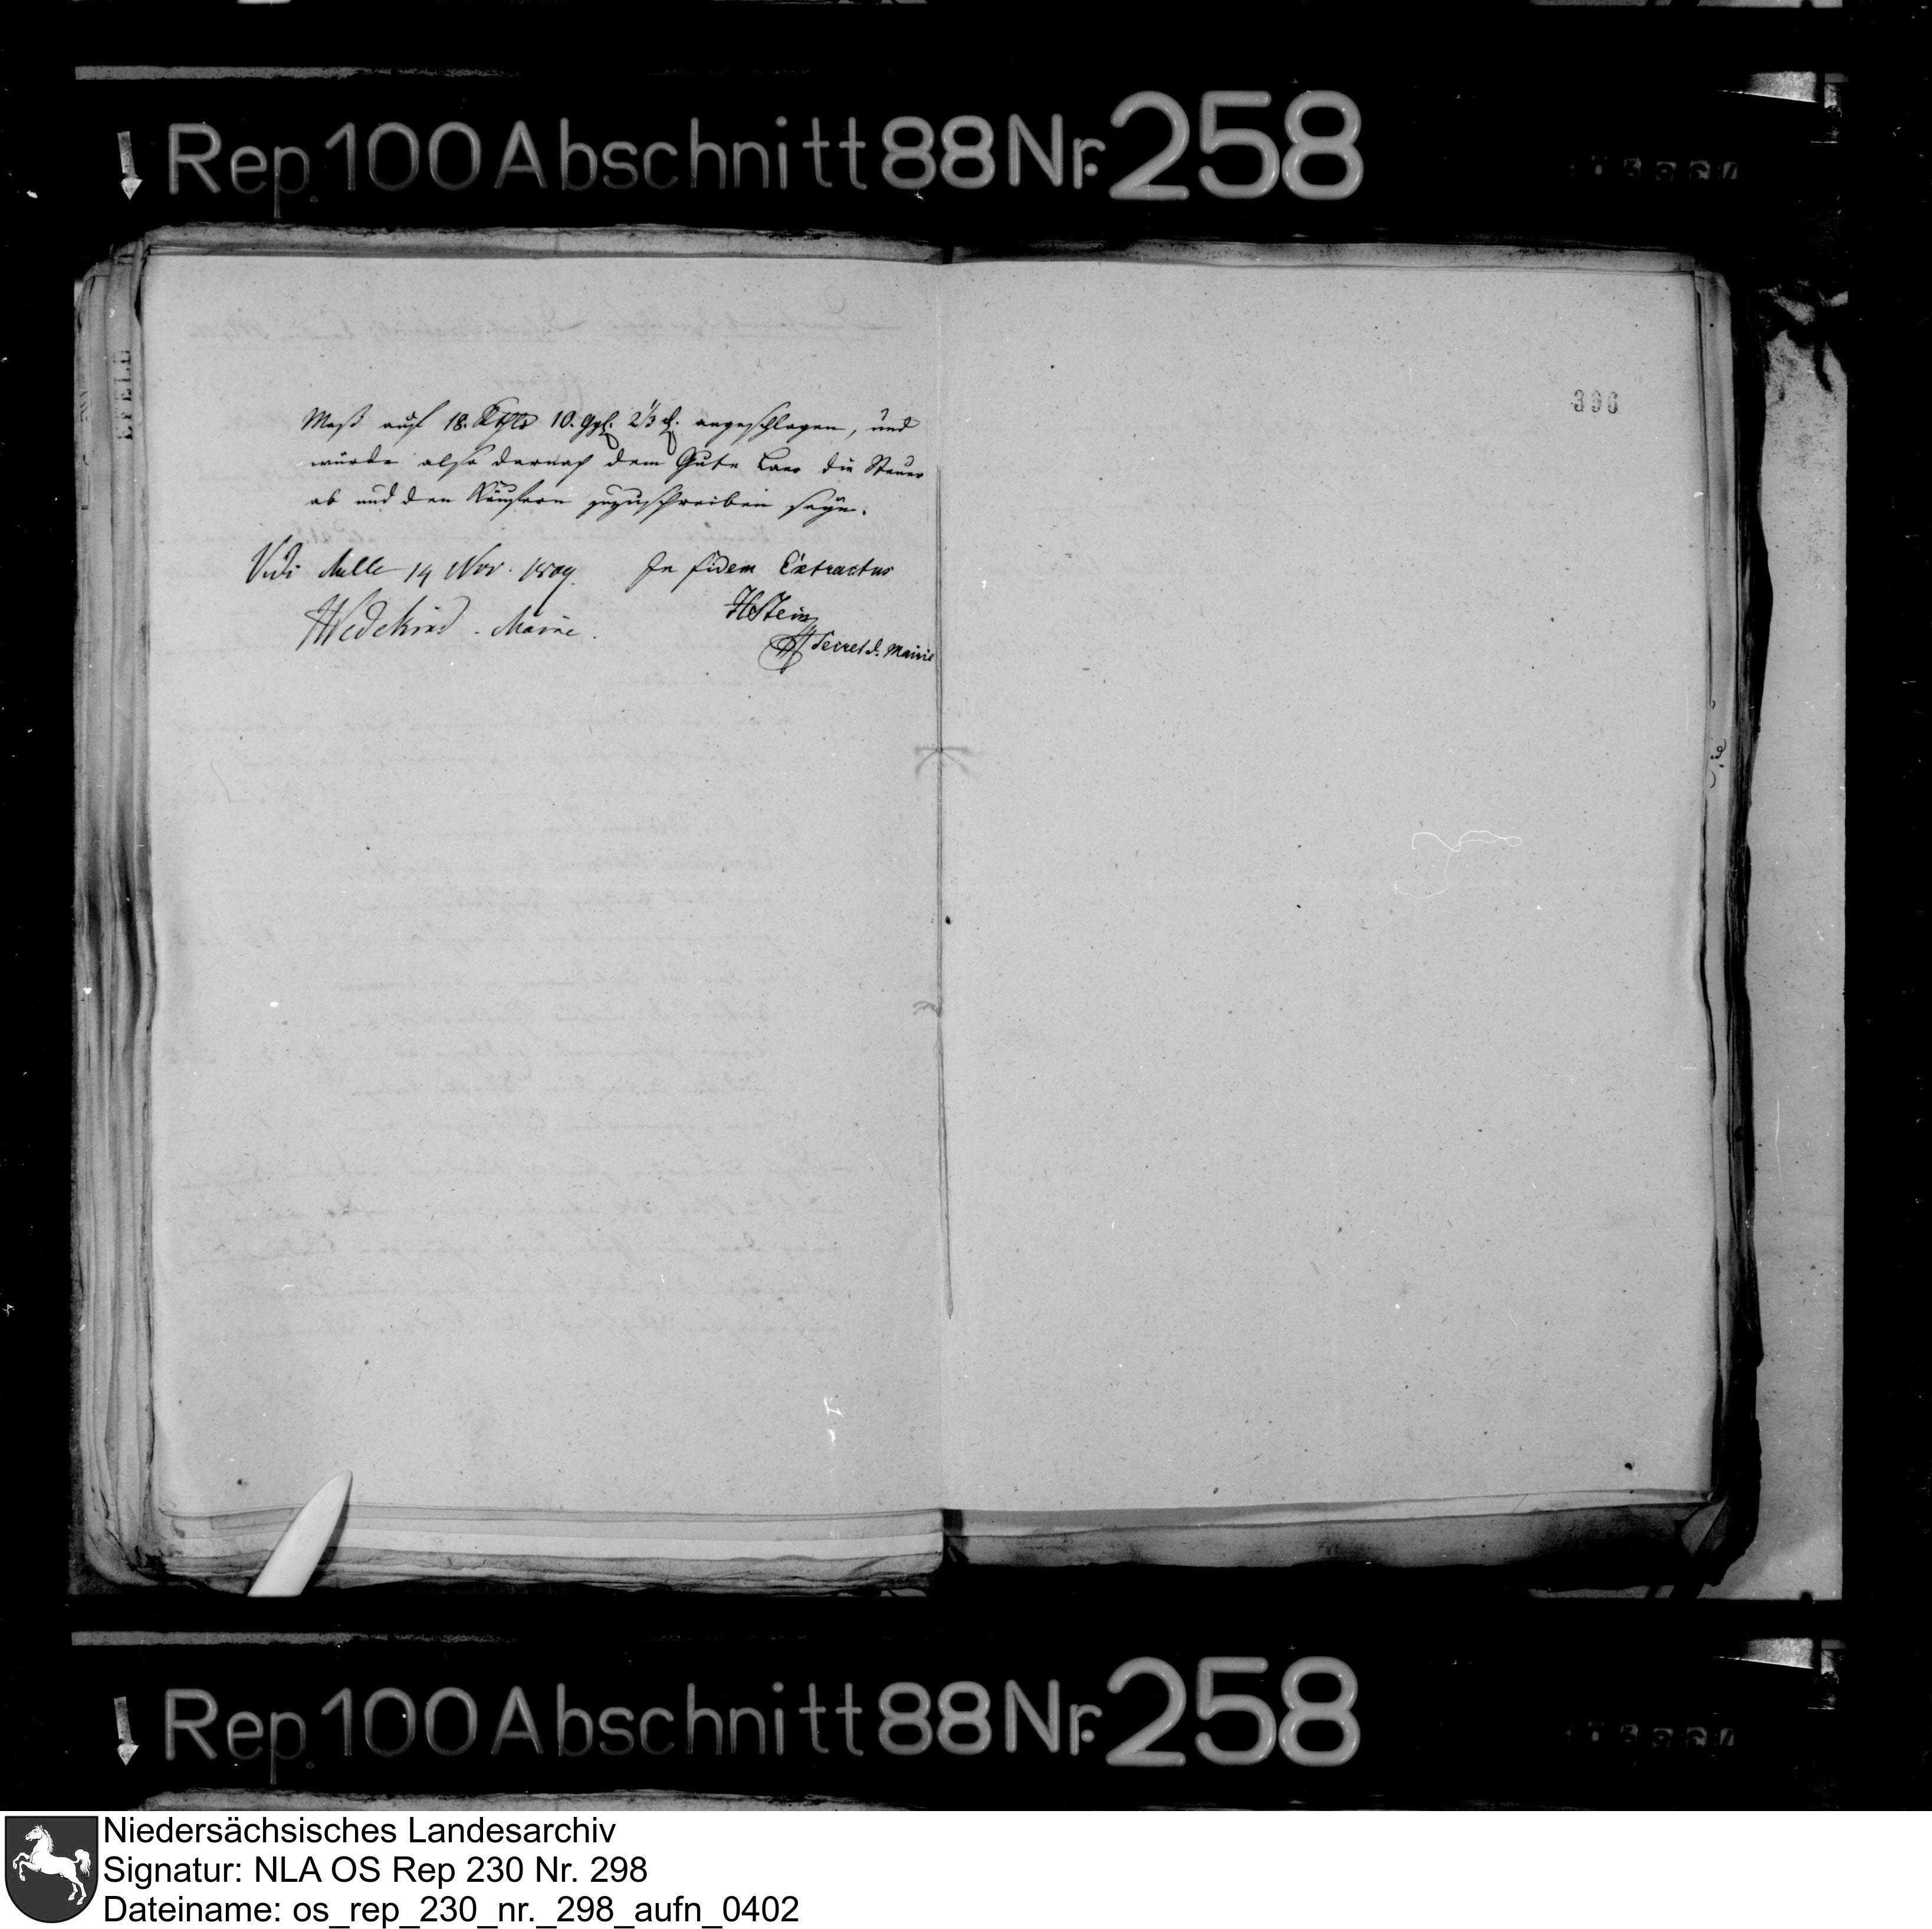 Rep. 100 Abschnitt 88 Nr. 258
396
Maß auf 18. Rthlr 10. Ggl. 2 1/3 d. angeschlagen, und
würde also darnach dem Gute Laer die Steuer
ab und den Käufern zuzuschreiben seyn.
Vidi Melle 14 Nov. 1809.
In fidem Extractus
Wedekind. Maire.
Secret d. Mairie
Rep. 100 Abschnitt 88 Nr. 258
Niedersächsisches Landesarchiv
Signatur: NLA OS Rep 230 Nr. 298
Dateiname: os_rep_230_nr._298_aufn_0402